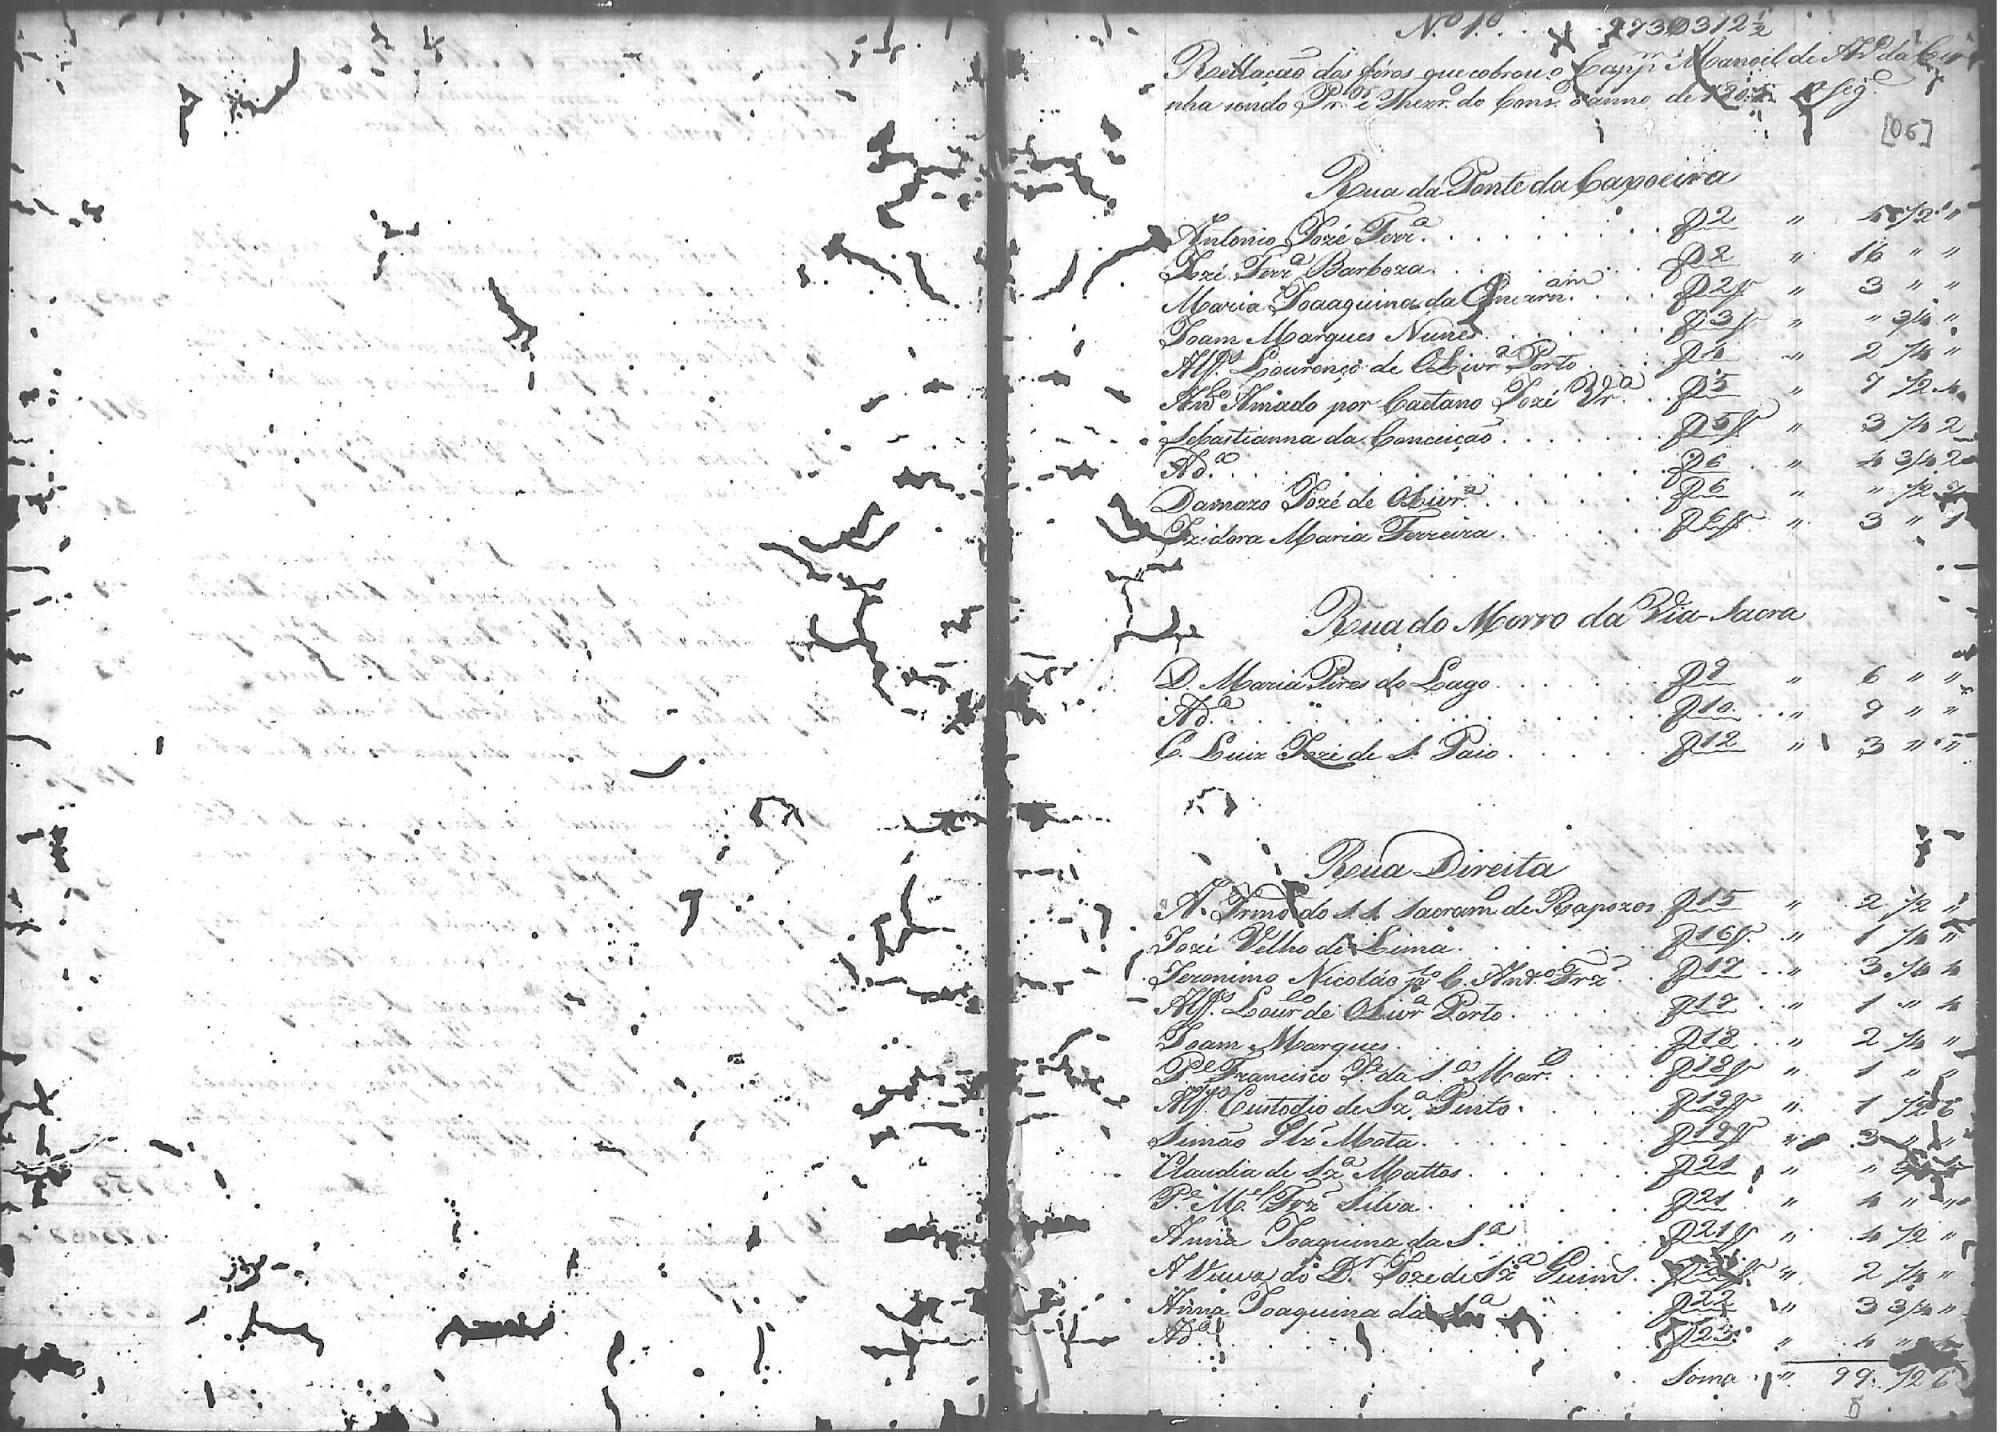 N.o 1.o
Rellação dos fóros que cobrou o Cap.m Manoel de Az.do da Cu
nha sendo Pr.or e Thezr.o do Cons.o o anno de
[06]
Rua da Ponte da Capoeira
Antonio Jozé Ferr.a f 2 " 4 1/2 "
Jozé Ferr.a Barboza f 2 " 16 " "
Maria Joaaquina da f 2 " 3 " "
Joam Marques Nunes f 3 " " 3/4 "
Alf.s Lourenço de Olivr.a Porto f 4 " 2 1/4 "
Amado por Caetano Jozé f 5 " 7 1/2 4
Sebastianna da Conceição f 5 " 3 1/4 2
Ad.a f 6 " 4 3/4 2
Damazo Jozé de Olivr.a f 6 " " 1/2
Izidora Maria Ferreira f 6 " 3 " 1
Rua do Morro da Via-Sacra
D. Maria Pires do Lago f 9 " 6 " "
Ad.a " f 10 " 9 " "
C. Luiz Jozé de S. Paio f 12 " 3 " "
Rua Direita
A Irmd.e do S.S. Sacram.to de Rapozos f 15 " 2 1/2 "
Jozé Velho de Lima f 16 " 1 1/4 "
Jeronimo Nicoláo p.lo C. Ant.o Frz f 17 " 3 1/4 4
Alf.s Lour.ço de Olivr.a Porto f 17 " 1 " 4
Joam Marques f 18 " 2 1/4 "
P.e Francisco P.r da S.a Mar. f 18 " 1 " "
Alf. Custodio de Sz.a Pinto f 19 " 1 1/2 6
Simão Mota f 19 " 3 " "
Claudia de Sz.a Mattos f 21 " "
P.e M.el Frz Silva f 21 " 4 " "
Anna Joaquina da S.a f 21 " 4 1/2 "
A Viuva do D.r Jozé de Sz.a Guim.s " 2 1/4 "
Anna Joaquina da S.a f 22 " 3 3/4 "
Ad.a f 23 " 4
Soma " 99 1/2 6